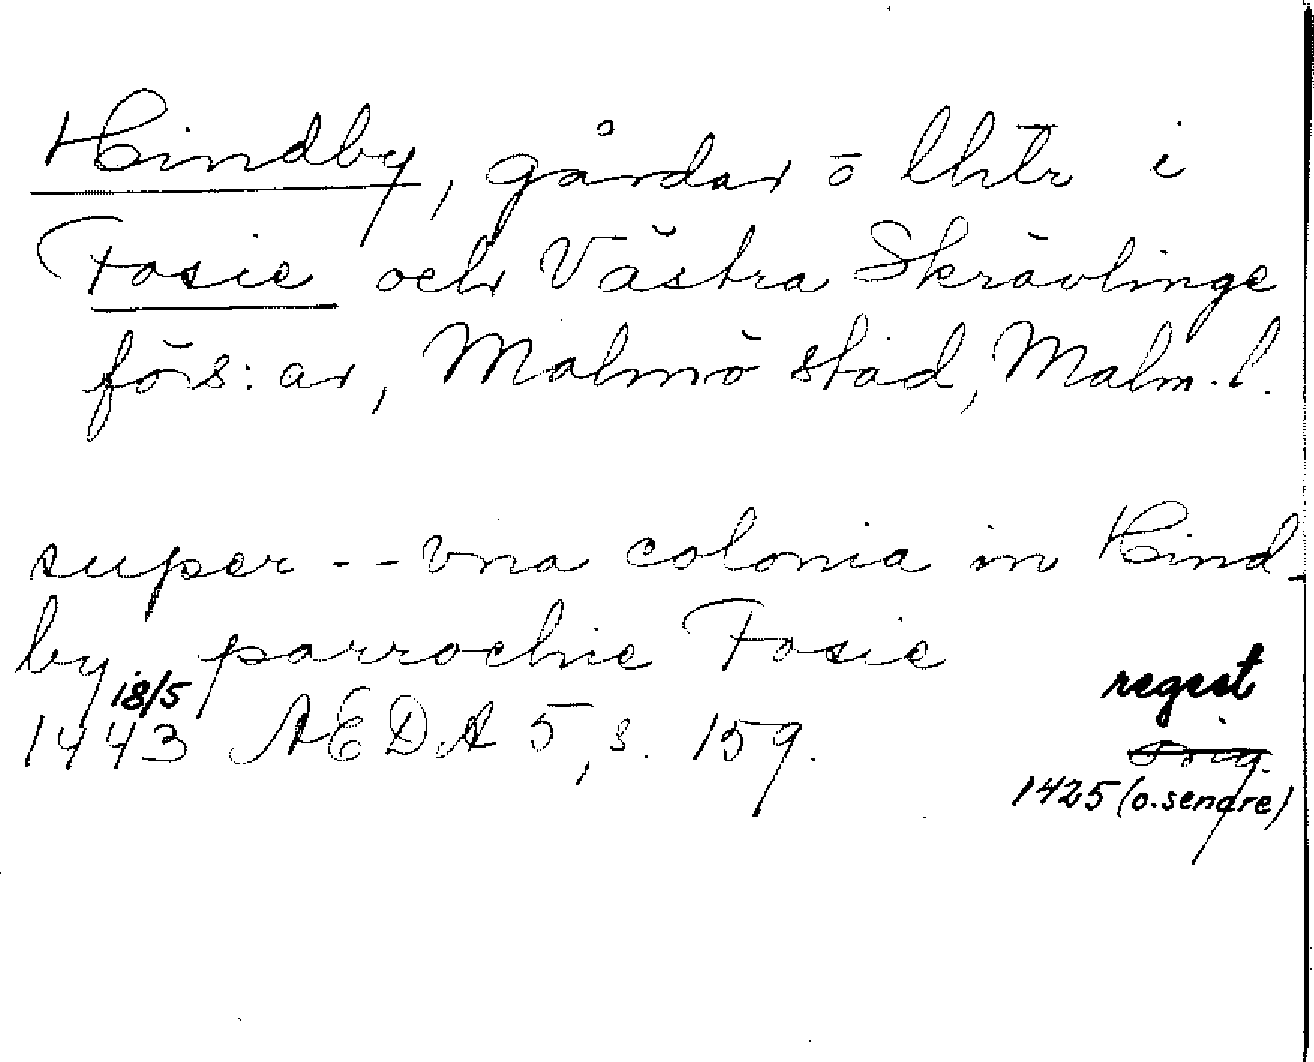 Hindby, gårdar o lhtr i
Fosie och Västra Skrävlinge
förs:ar, Malmö stad, Malm. l.
super - - vna colonia in Hind-
by parrochie Fosie
18/5
1443 AEDA 5, s. 159.
regest
Orig.
1425 (o. senare)